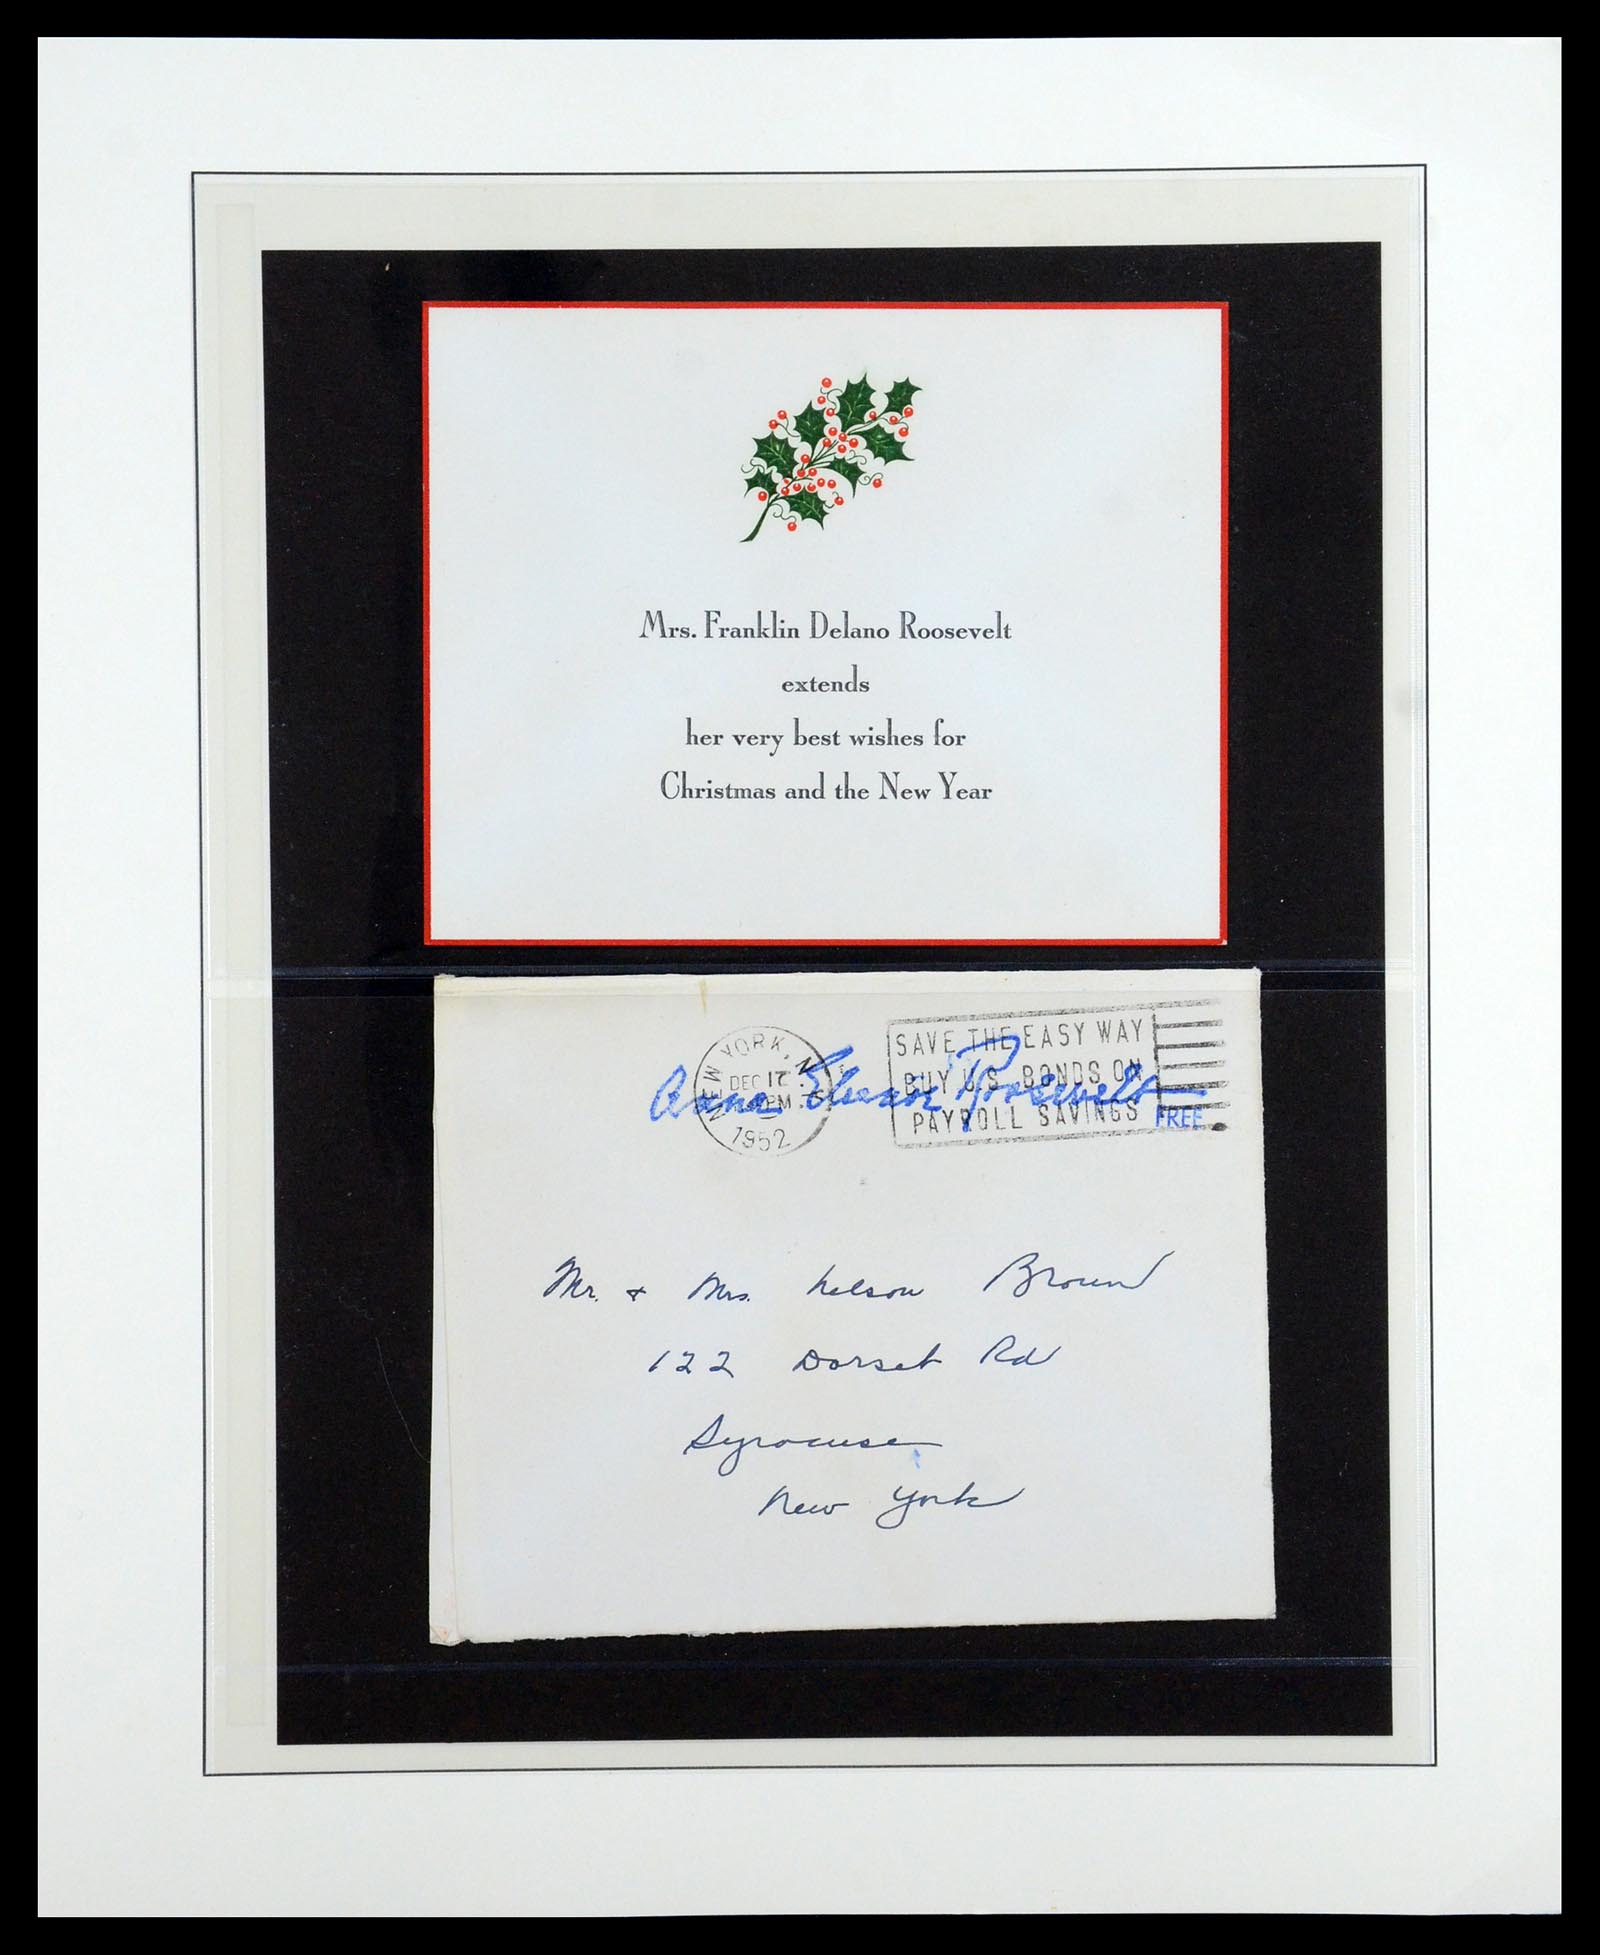 Mrs. Franklin Delano Roosevelt
extends
her very best wishes for
Christmas and the New Year
NEW YORK, N
DEC 17
PM
1952
SAVE THE EASY WAY
BUY U.S. BONDS ON
PAYROLL SAVINGS
Anna Eleanor Roosevelt
FREE
Mr. & Mrs. Nelson Brown
122 Dorset Rd
Syracuse
New York